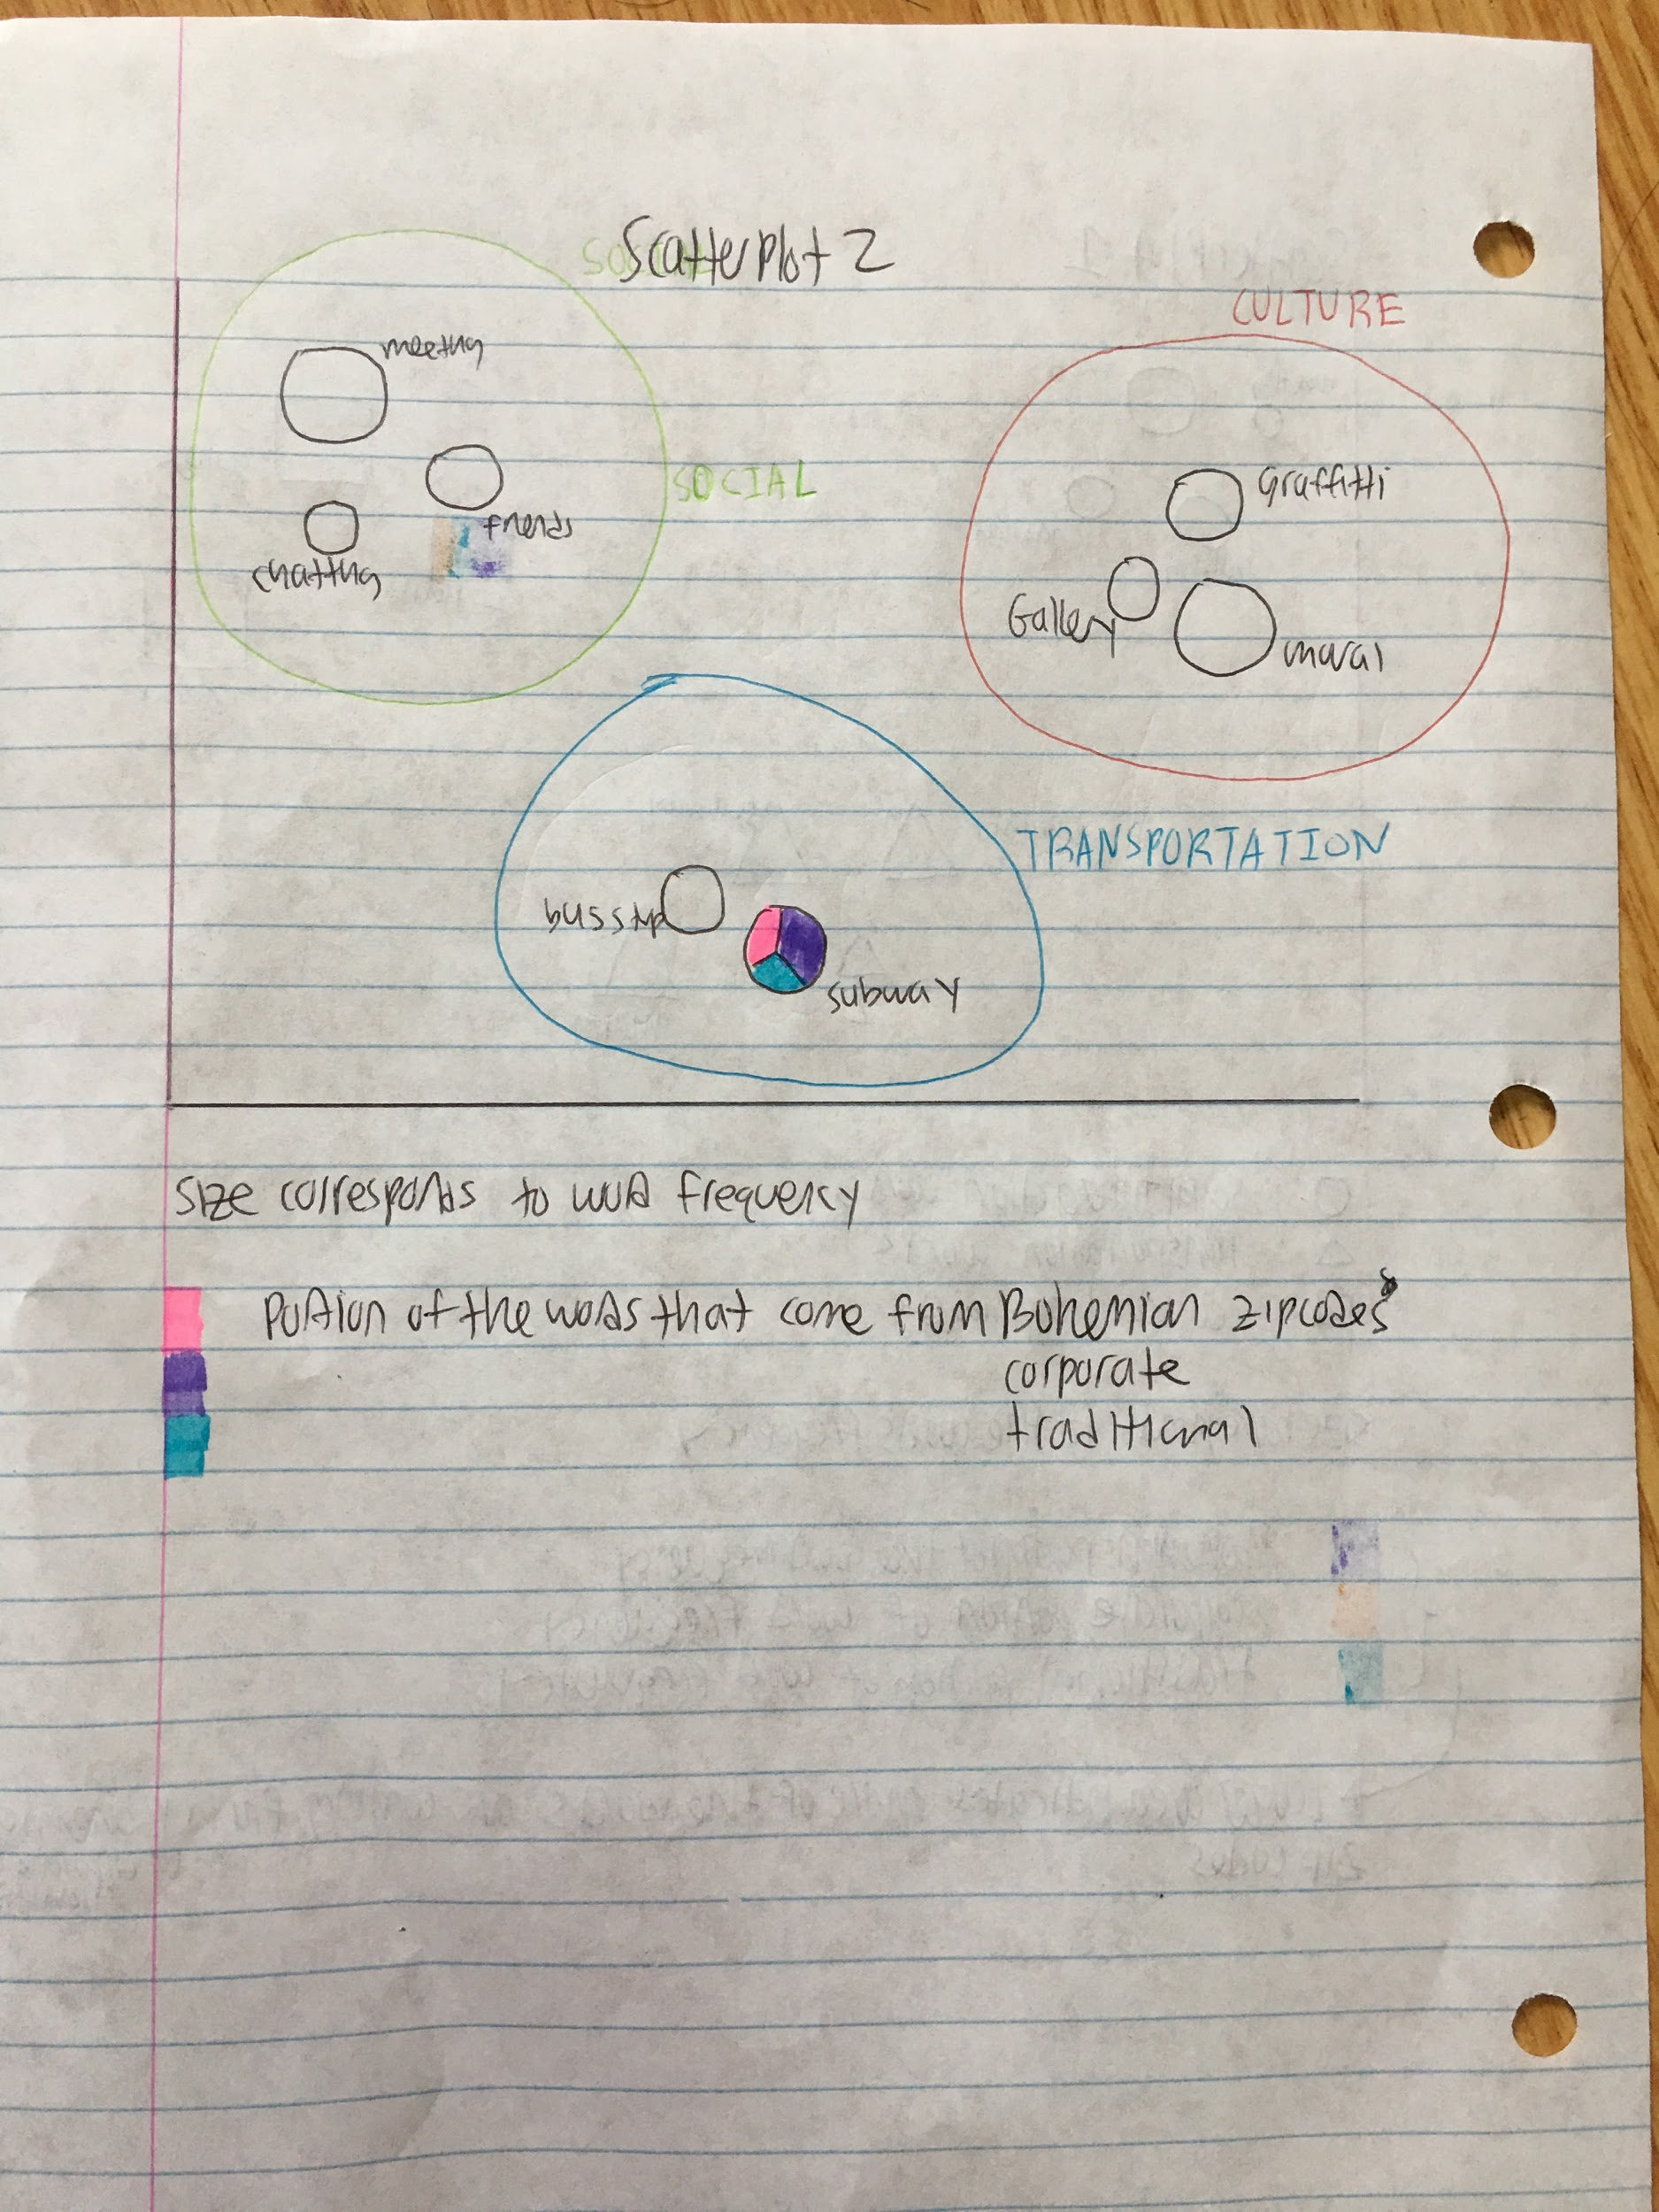 Scatterplot 2
CULTURE
meeting
SOCIAL
Graffitti
friends
chatting
Gallery
mural
TRANSPORTATION
busstop
subway
Size corresponds to word frequency
Portion of the words that come from Bohemian zipcodes
corporate
traditional